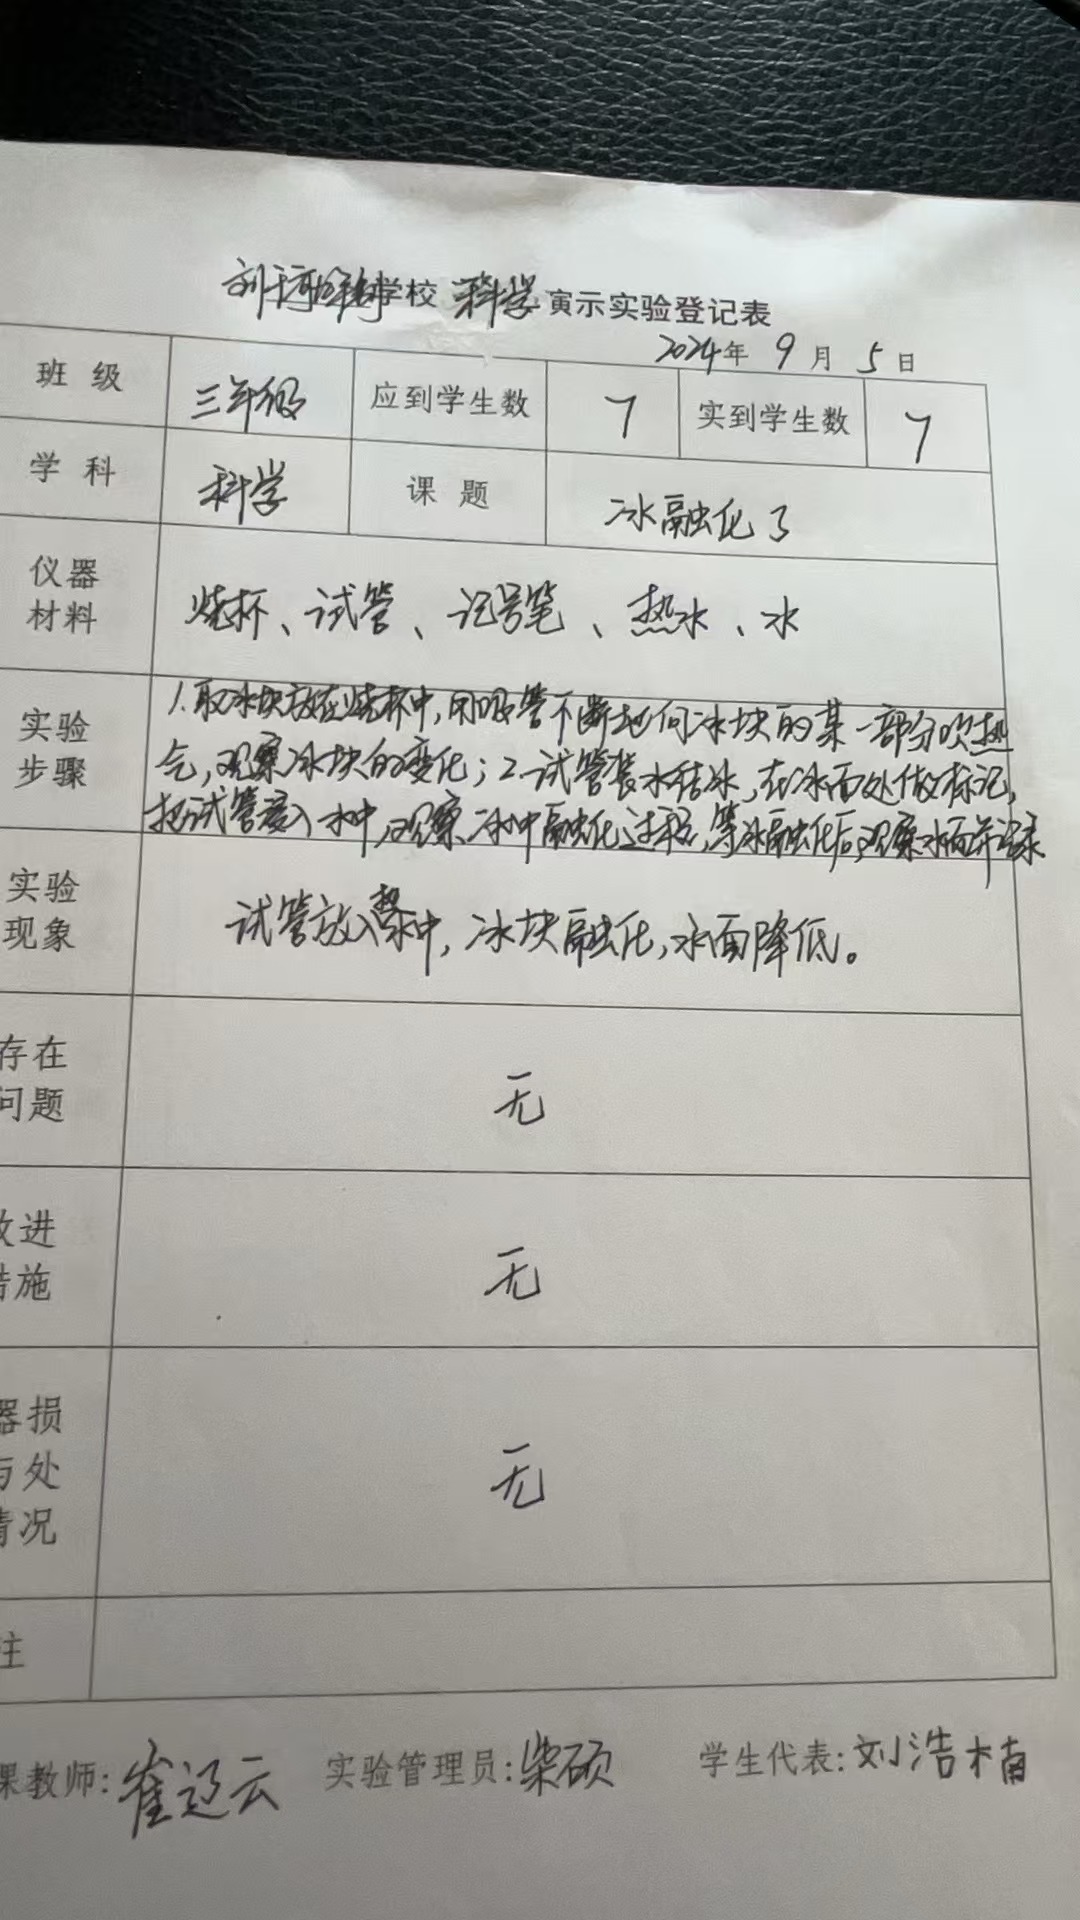 学校 科学 演示实验登记表
2024年 9月 5日
班级 三年级 应到学生数 7 实到学生数 7
学科 科学 课题 冰融化了
仪器
材料
烧杯、试管、记号笔、热水、冰
实验
步骤
1.取冰块放在烧杯中,用吸管不断地向冰块的某一部分吹热
气,观察冰块的变化;2.试管装水结冰,在冰面处做标记,
把试管放入水中,观察冰融化过程,等冰融化后,观察水面并记录
实验
现象
试管放入热水中,冰块融化,水面降低。
存在
问题
无
改进
措施
无
器损
与处
情况
无
注
课教师:崔辽云 实验管理员:柴硕 学生代表:刘浩楠